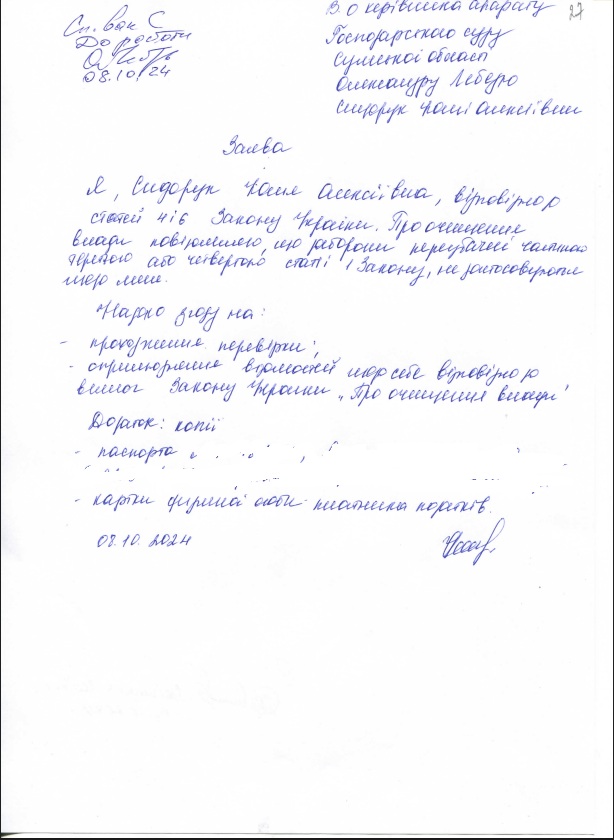 27
До роботи
08.10.24
В.о керівника апарату
Господарського суду
Сумської області
Олександру Лебедю
Сидорук Юлії Олексіївни
Заява
Я, Сидорук Юлія Олексіївна, відповідно до
статей 4 і 6 Закону України "Про очищення
влади" повідомляю, що заборони передбачені частиною
третьою або четвертою статті 1 Закону, не застосовуються
щодо мене.
Надаю згоду на:
- проходження перевірки;
- оприлюднення відомостей щодо себе відповідно до
вимог Закону України „Про очищення влади"
Додаток: копії
- паспорта
- картки фізичної особи платника податків.
08.10.2024